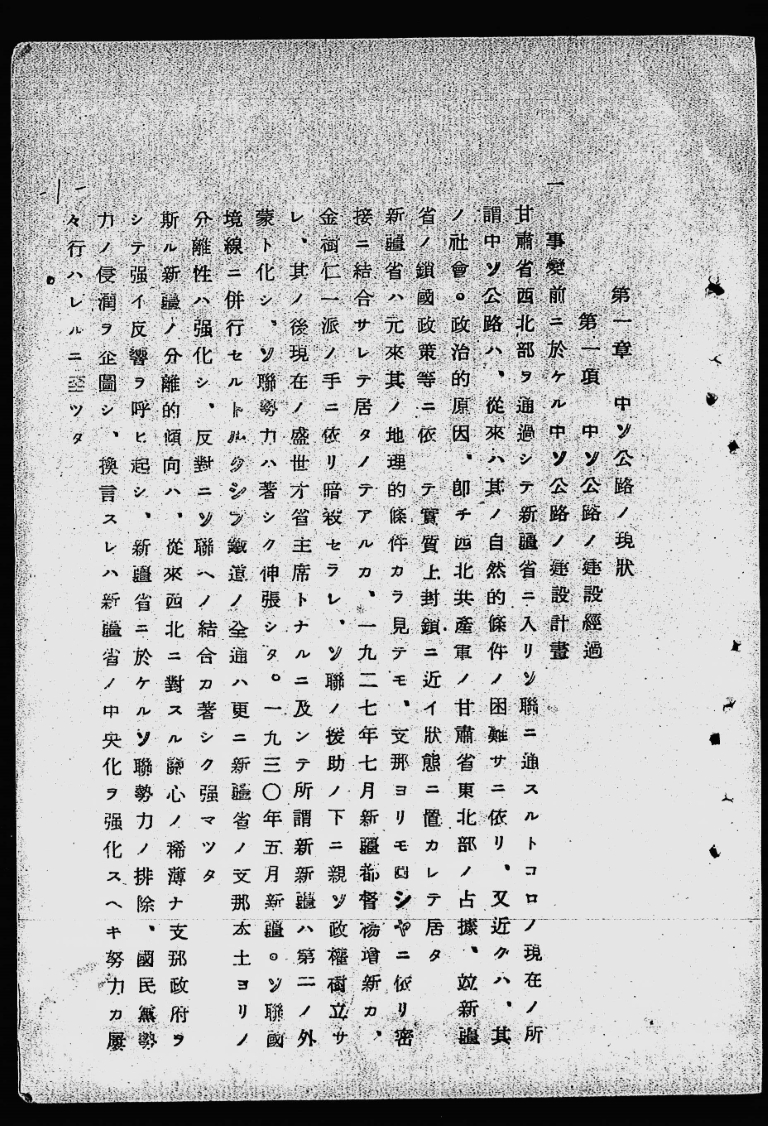 第一章　中ソ公路ノ現狀
第一項　中ソ公路ノ建設經過
一　事變前ニ於ケル中ソ公路ノ建設計畫
甘肅省西北部ヲ通過シテ新疆省ニ入リソ聯ニ通スルトコロノ現在ノ所
謂中ソ公路ハ、從來ハ其ノ自然的條件ノ困難サニ依リ、又近クハ、其
ノ社會。政治的原因、卽チ西北共產軍ノ甘肅省東北部ノ占據、竝新疆
省ノ鎖國政策等ニ依　テ實質上封鎖ニ近イ狀態ニ置カレテ居タ
新疆省ハ元來其ノ地理的條件カラ見テモ、支那ヨリモロシヤニ依リ密
接ニ結合サレテ居タノテアルカ、一九二七年七月新疆都督楊增新カ、
金樹仁一派ノ手ニ依リ暗殺セラレ、ソ聯ノ援助ノ下ニ親ソ政權樹立サ
レ、其ノ後現在ノ盛世才省主席トナルニ及ンテ所謂新新疆ハ第二ノ外
蒙ト化シ、ソ聯勢力ハ著シク伸張シタ。一九三〇年五月新疆。ソ聯國
境線ニ併行セルトルクシブ鐵道ノ全通ハ更ニ新疆省ノ支那本土ヨリノ
分離性ハ强化シ、反對ニソ聯ヘノ結合カ著シク强マツタ
斯ル新疆ノ分離的傾向ハ、從來西北ニ對スル關心ノ稀薄ナ支那政府ヲ
シテ强イ反響ヲ呼ヒ起シ、新疆省ニ於ケルソ聯勢力ノ排除、國民黨勢
力ノ侵潤ヲ企圖シ、換言スレハ新疆省ノ中央化ヲ强化スヘキ努力カ屢
々行ハレルニ至ツタ
-1-